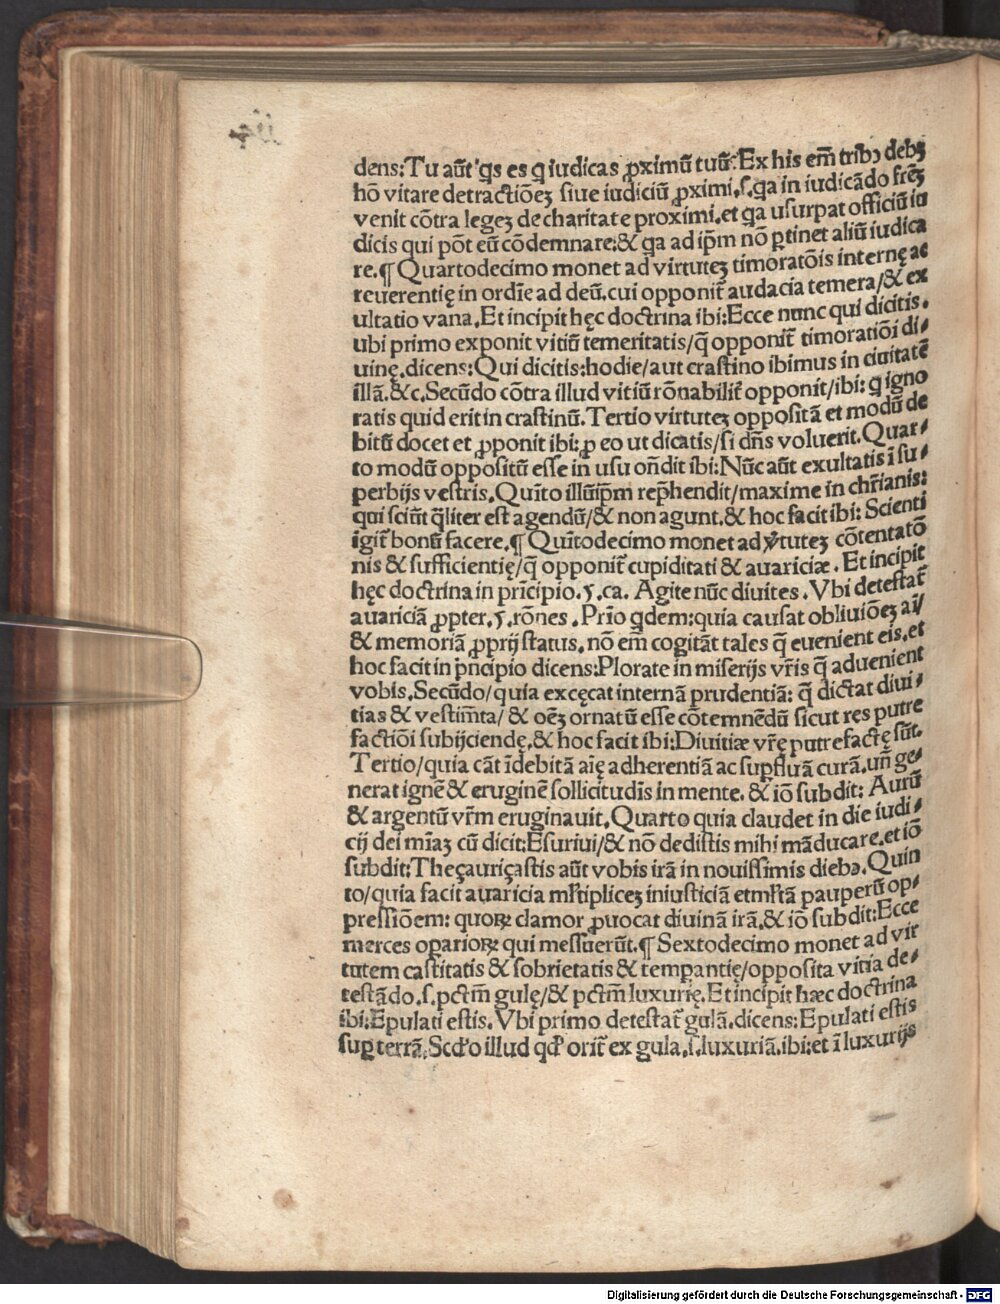 dens:Tu aūt q̇s es q iudicas ꝓximū tuū:Ex his em̄ tribꝰ debꝫ
hō vitare detractiōeꝫ siue iudiciū ꝓximi.s.qa in iudicādo frēꝫ
venit cōtra legeꝫ de charitate proximi.et qa usurpat officiū iu
dicis qui pōt eū cōdemnare:& qa ad ip̄m nō ꝑtinet aliū iudica
re.¶ Quartodecimo monet ad virtuteꝫ timoratōis internę ac
reuerentię in ordīe ad deū.cui opponit̄ audacia temera/& ex
ultatio vana.Et incipit hęc doctrina ibi:Ecce nunc qui dicitis.
ubi primo exponit vitiū temeritatis/q̄ opponit̄ timoratiōi di⸗
uinę.dicens:Qui dicitis:hodie/aut crastino ibimus in ciuitatē
illā.&c.Secūdo cōtra illud vitiū rōnabilit̄ opponit/ibi: q igno
ratis quid erit in crastinū.Tertio virtuteꝫ oppositā et modū de
bitū docet et ꝓponit ibi:ꝓ eo ut dicatis/si dn̄s voluerit.Quar⸗
to modū oppositū esse in usu on̄dit ibi:Nūc aūt exultatis ī su⸗
perbijs vestris.Quīto illūip̄m rep̄hendit/maxime in chr̄ianis:
qui sciūt q̄liter est agendū/& non agunt.& hoc facit ibi: Scienti
igit̄ bonū facere.¶ Quītodecimo monet ad v̄tuteꝫ cōtentatō
nis & sufficientię/q̄ opponit̄ cupiditati & auariciæ. Et incipit
hęc doctrina in prīcipio.5.ca. Agite nūc diuites. Vbi detestat̄
auariciā ꝓpter.5.rōnes. Prīo qdem:quia causat obliuiōeꝫ aī/
& memoriā ꝓprij status.nō em̄ cogitāt tales q̄ euenient eis.et
hoc facit in pn̄cipio dicens:Plorate in miserijs vr̄is q̄ aduenient
vobis.Secūdo/quia excęcat internā prudentiā: q̄ dictat diui⸗
tias & vestim̄ta/ & oēꝫ ornatū esse cōtemnēdū sicut res putre
factiōi subijciendę.& hoc facit ibi:Diuitiæ vr̄ę putrefactę sūt.
Tertio/quia cāt īdebitā aīę adherentiā ac suꝑfluā curā.un̄ ge⸗
nerat ignē & eruginē sollicitudīs in mente. & iō subdit: Aurū
& argentū vr̄m eruginauit.Quarto quia claudet in die iudi⸗
cij dei mīaꝫ cū dicit:Esuriui/& nō dedistis mihi māducare.et iō
subdit:Theçauriçastis aūt vobis irā in nouissimis diebꝰ.Quin
to/quia facit auaricia ml̄tipliceꝫ iniusticiā etml̄tā pauperū op⸗
pressiōem: quoꝝ clamor ꝓuocat diuinā irā.& iō subdit:Ecce
merces oꝑarioꝝ qui messuerūt.¶ Sextodecimo monet ad vir
tutem castitatis & sobrietatis & temꝑantię/opposita vitia de⸗
testādo.s.pctm̄ gulę/& pctm̄ luxurię.Et incipit hæc doctrina
ibi:Epulati estis.Vbi primo detestat̄ gulā.dicens:Epulati estis
suꝑ terrā.Scd̄o illud qd̄ orit̄ ex gula.s.luxuriā.ibi:et ī luxurijs
Digitalisierung gefördert durch die Deutsche Forschungsgemeinschaft - DFG